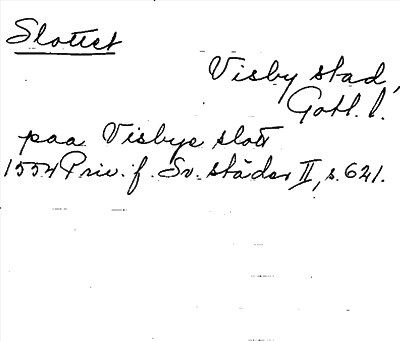 Slottet
Visby stad,
Gotl. l.
paa Visbye slott
1554 Priv. f. Sv. städer II, s. 621.